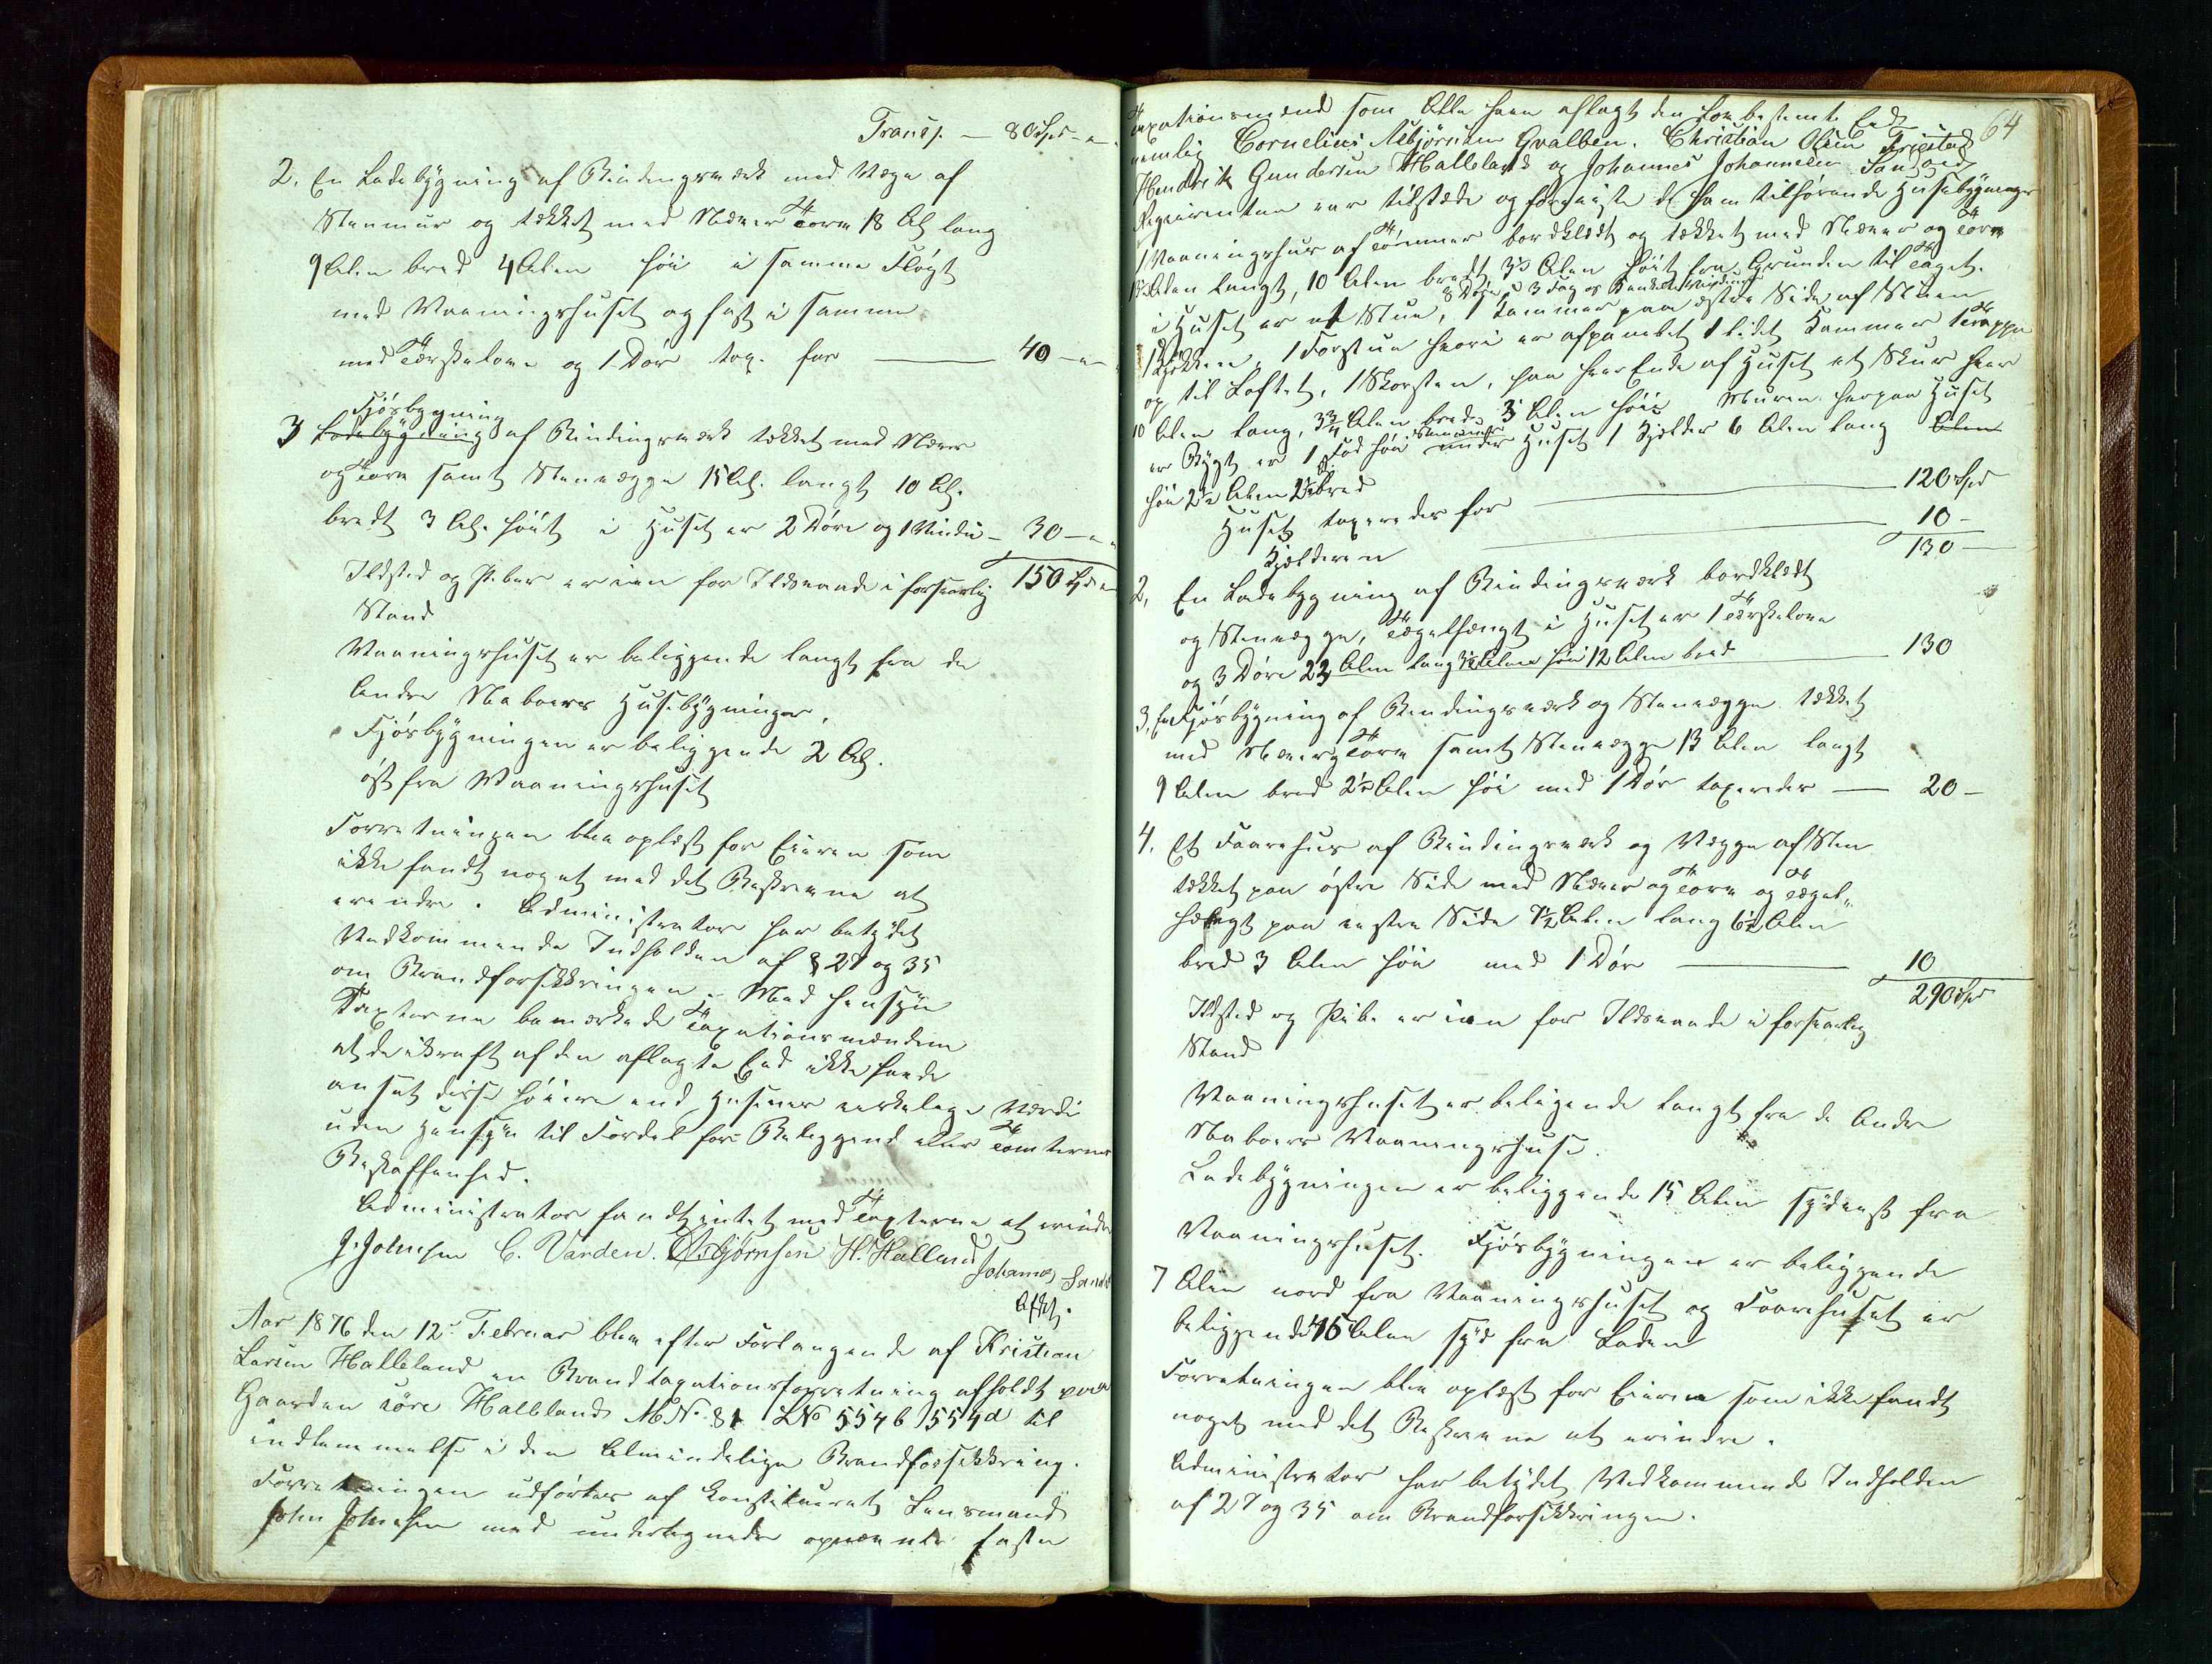 Transp. — 80 Spd — "
2. En Ladebygning af Bindingsværk med Vægge af
Stenmur og tækket med Næver Torv 18 Al lang
9 Alen bred 4 Alen høi i samme Fløgt
med Vaaningshuset og fast i samme
med Tærskelove og 1 Dør tax. for — 40 — "
Fjøsbygning
3 Ladebygning af Bindingsværk tækket med Næver
og Torv samt Stenvægge 15 Al. langt 10 Al.
bredt 3 Al. høit i Huset er 2 Døre og 1 Vindu — 30 — "
Ildsted og Piber er inn for Ildsvaade i forsvarlig 150 Spd "
Stand
Vaaningshuset er beliggende langt fra de
Andre Naboers Husebygninger.
Fjøsbygningen er beliggende 2 Al.
øst fra Vaaningshuset
Forretningen blev oplæst for Eieren som
ikke fandt noget med det Beskrevne at
erindre. Administrator har betydet
Vedkommende Indholden af § 27 og 35
om Brandforsikkringen. Med Hensyn
Taxterne bemærkede Taxationsmændene
at de ikraft af den aflagte Eed ikke havde
ansat disse høiere end Husenes virkelige Værdi
uden Hensyn til Fordel for Beliggend eller Tomternes
Beskaffenhed.
Administrator fandt intet med Taxterne at erindre
J. Johnsen C. Varden. Asbjørnsen H. Halland Johannes Sandv
Afskt.
Aar 1876 den 12te Februar blev efter Forlangende af Kristian
Larsen Halleland en Brandtaxationsforretning afholdt paa
Gaarden søre Halleland M.No. 81 LNo 554b 554d til
indlemmelse i den Almindelige Brandforsikkring.
Forretningen udførtes af Constitueret Lensmand
John Johnsen med undertegnede opnævnte faste
64
Taxationsmænd som Alle have aflagt den lovbestemte Eed
nemlig Cornelius Asbjørnsen Qvalben. Christian Olsen Fristad
Hendrik Gundersen Halleland og Johannes Johannesen Sandvd
Reqvirenten var tilstæde og foreviste de ham tilhørende Husebygninger
1 Vaaningshus af Tømmer bordklædt og tækket med Næver og Torv
Alen langt, 10 Alen bredt 3½ Alen høit fra Grunden til Taget.
8 Døre 3 fag og Vinduer
i Huset er et Stue, 1 Kammer paa østre Side af Stuen
1 Kjøkken, 1 Forstue hvori er afpanelet 1 lidet Kammer 1 Trappe
op til Loftet, 1 Skorsten, paa hver Ende af Huset et Skur hver
10 Alen lang, 3¾ Alen bred 3 Alen høi Muren hvorpaa Huset
er Bygt er 1 Fod høi under Huset 1 Kjelder 6 Alen lang Alen
høi 2½ Alen 2½ bred
Huset taxeredes for — 120 Spd
Kjelderen — 10 —
130 —
2. En Ladebygning af Bindingsværk bordklædt
og Stenvægge, Tægelhængt i Huset er 1 Tærskelove
og 3 Døre 23 Alen lang 3½ Alen høi 12 Alen bred — 130
3. En Fjøsbygning af Bindingsværk og Stenvægge tækket
med Næver og Torv samt Stenvægge 13 Alen langt
9 Alen bred 2½ Alen høi med 1 Dør taxeredes — 20 —
4. Et Faarehus af Bindingsværk og Vægge af Sten
tækket paa østre Side med Næver og Torv og Tægel„
hængt paa vestre Side 7½ Alen lang 6½ Alen
bred 3 Alen høi med 1 Dør — 10
290 Spd
Ildsted og Pibe er inn for Ildsvaade i forsvarlig
Stand
Vaaningshuset er beligende langt fra de Andre
Naboers Vaaningshuse.
Ladebygningen er beliggende 15 Alen sydvest fra
Vaaningshuset. Fjøsbygningen er beliggende
7 Alen nord fra Vaaningshuset og Faarehuset er
beliggende 15 Alen syd fra Laden
Forretningen blev oplæst for Eieren som ikke fandt
noget med det Beskrevne at erindre.
Administrator har betydet Vedkommende Indholden
af 27 og 35 om Brandforsikkringen.